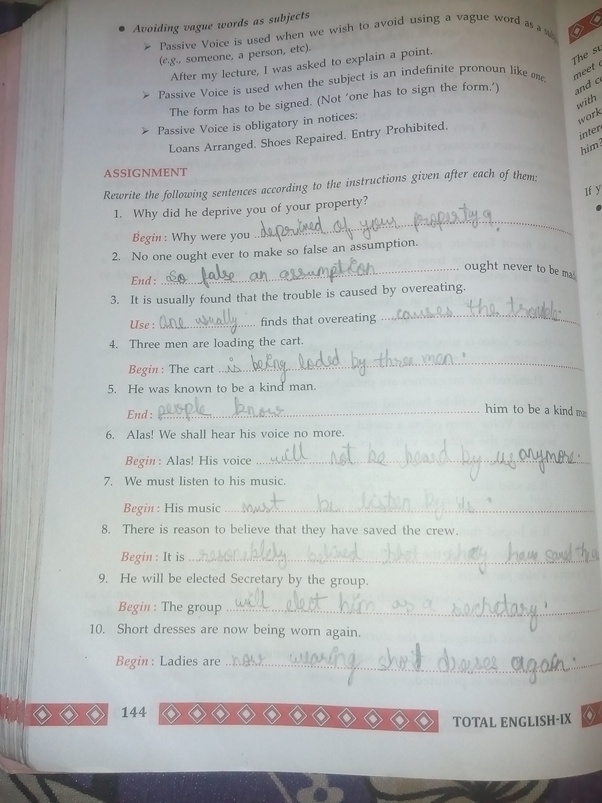 • Avoiding vague words as subjects
➢ Passive Voice is used when we wish to avoid using a vague word as a
(e.g., someone, a person, etc).
After my lecture, I was asked to explain a point.
➢ Passive Voice is used when the subject is an indefinite pronoun like one.
The form has to be signed. (Not 'one has to sign the form.')
➢ Passive Voice is obligatory in notices:
Loans Arranged. Shoes Repaired. Entry Prohibited.
ASSIGNMENT
Rewrite the following sentences according to the instructions given after each of them:
1. Why did he deprive you of your property?
Begin: Why were you deprived of your property?
2. No one ought ever to make so false an assumption.
End: So false an assumption ought never to be
3. It is usually found that the trouble is caused by overeating.
Use: One usually finds that overeating causes the trouble.
4. Three men are loading the cart.
Begin: The cart is being loded by three men.
5. He was known to be a kind man.
End: people know him to be a kind
6. Alas! We shall hear his voice no more.
Begin: Alas! His voice will not be heard by us anymore.
7. We must listen to his music.
Begin: His music must be listen by us.
8. There is reason to believe that they have saved the crew.
Begin: It is that they have
9. He will be elected Secretary by the group.
Begin: The group will elect him as a sechetary.
10. Short dresses are now being worn again.
Begin: Ladies are now wearing short dresses again.
144
TOTAL ENGLISH-IX
The
meet
and
with
work
him?
If